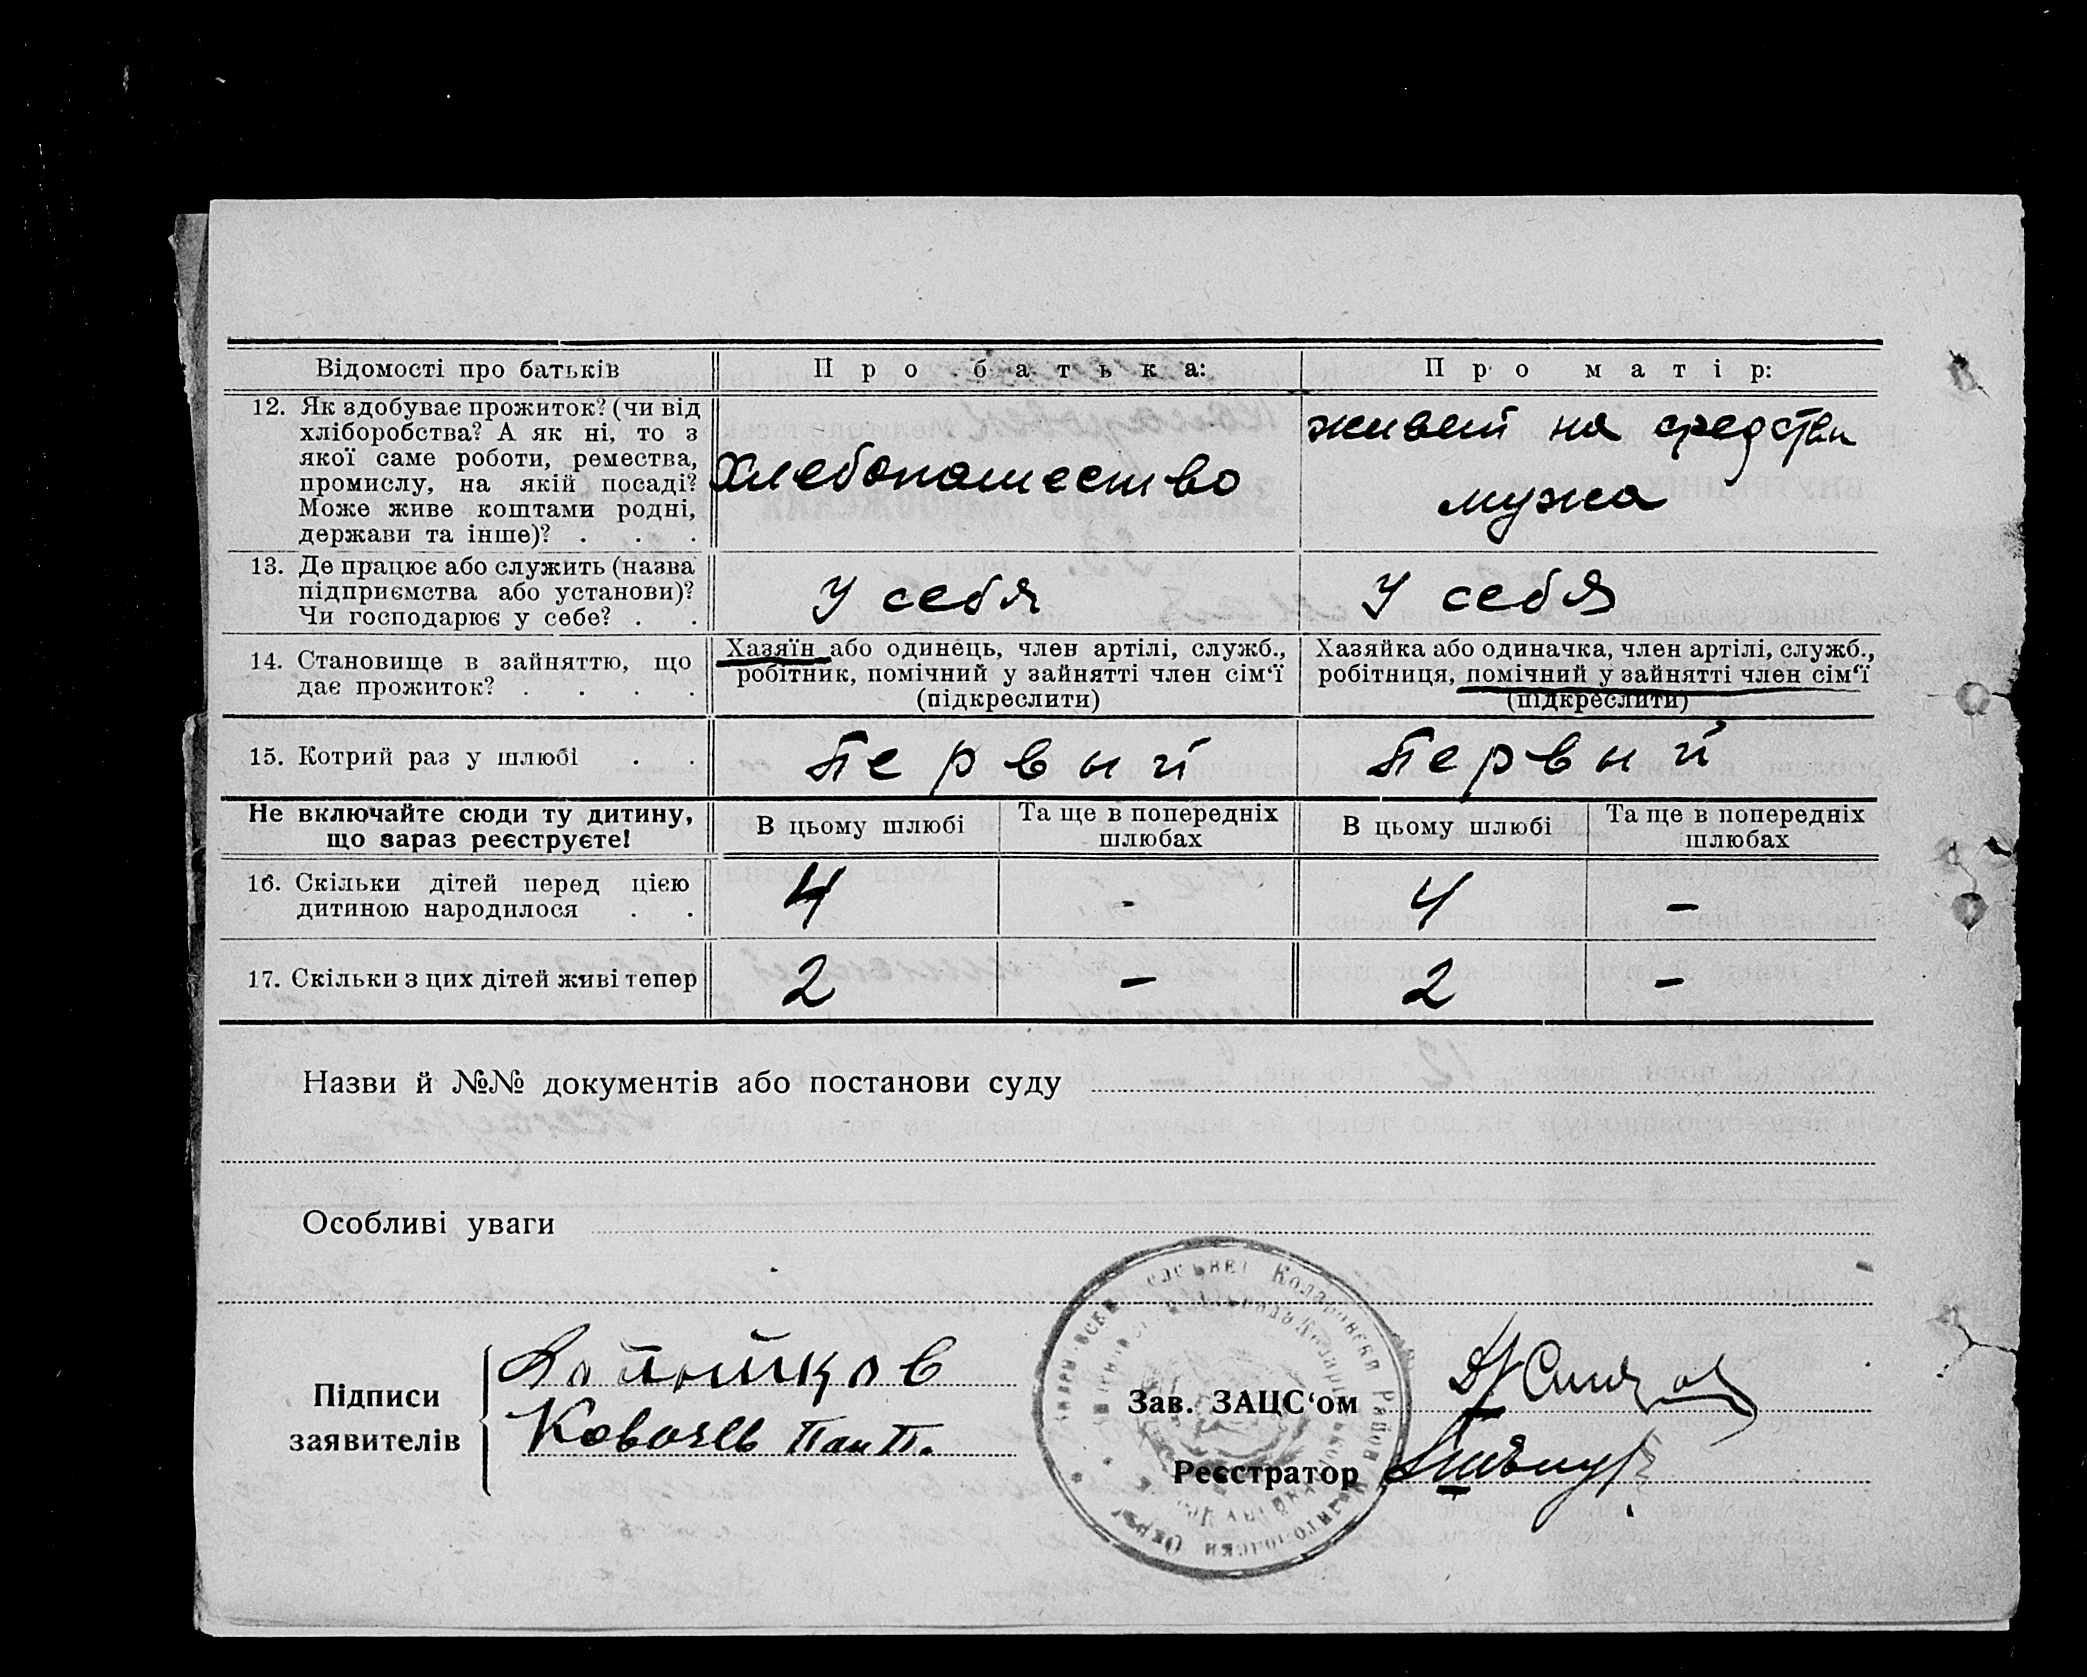 Відомості про батьків
Про батька:
Про матір:
12. Як здобуває прожиток? (чи від
хліборобства? А як ні, то з
якої саме роботи, ремества,
промислу, на якій посаді?
Може живе коштами родні,
держави та інше)? . . .
Хлебопашество
живет на средства
мужа
13. Де працює або служить (назва
підприємства або установи)?
Чи господарює у себе? . .
У себя
У себя
14. Становище в зайняттю, що
дає прожиток? . . . .
Хазяїн або одинець, член артілі, служб.,
робітник, помічний у зайнятті член сім'ї
(підкреслити)
Хазяйка або одиначка, член артілі, служб.,
робітниця, помічний у зайнятті член сім'ї
(підкреслити)
15. Котрий раз у шлюбі . .
Первый
Первый
Не включайте сюди ту дитину,
що зараз реєструєте!
В цьому шлюбі
Та ще в попередніх
шлюбах
В цьому шлюбі
Та ще в попередніх
шлюбах
16. Скільки дітей перед цією
дитиною народилося . .
4
-
4
-
17. Скільки з цих дітей живі тепер
2
-
2
-
Назви й №№ документів або постанови суду
Особливі уваги
Підписи
заявителів
Ковачев Пан П.
Зав. ЗАЦС'ом
Реєстратор